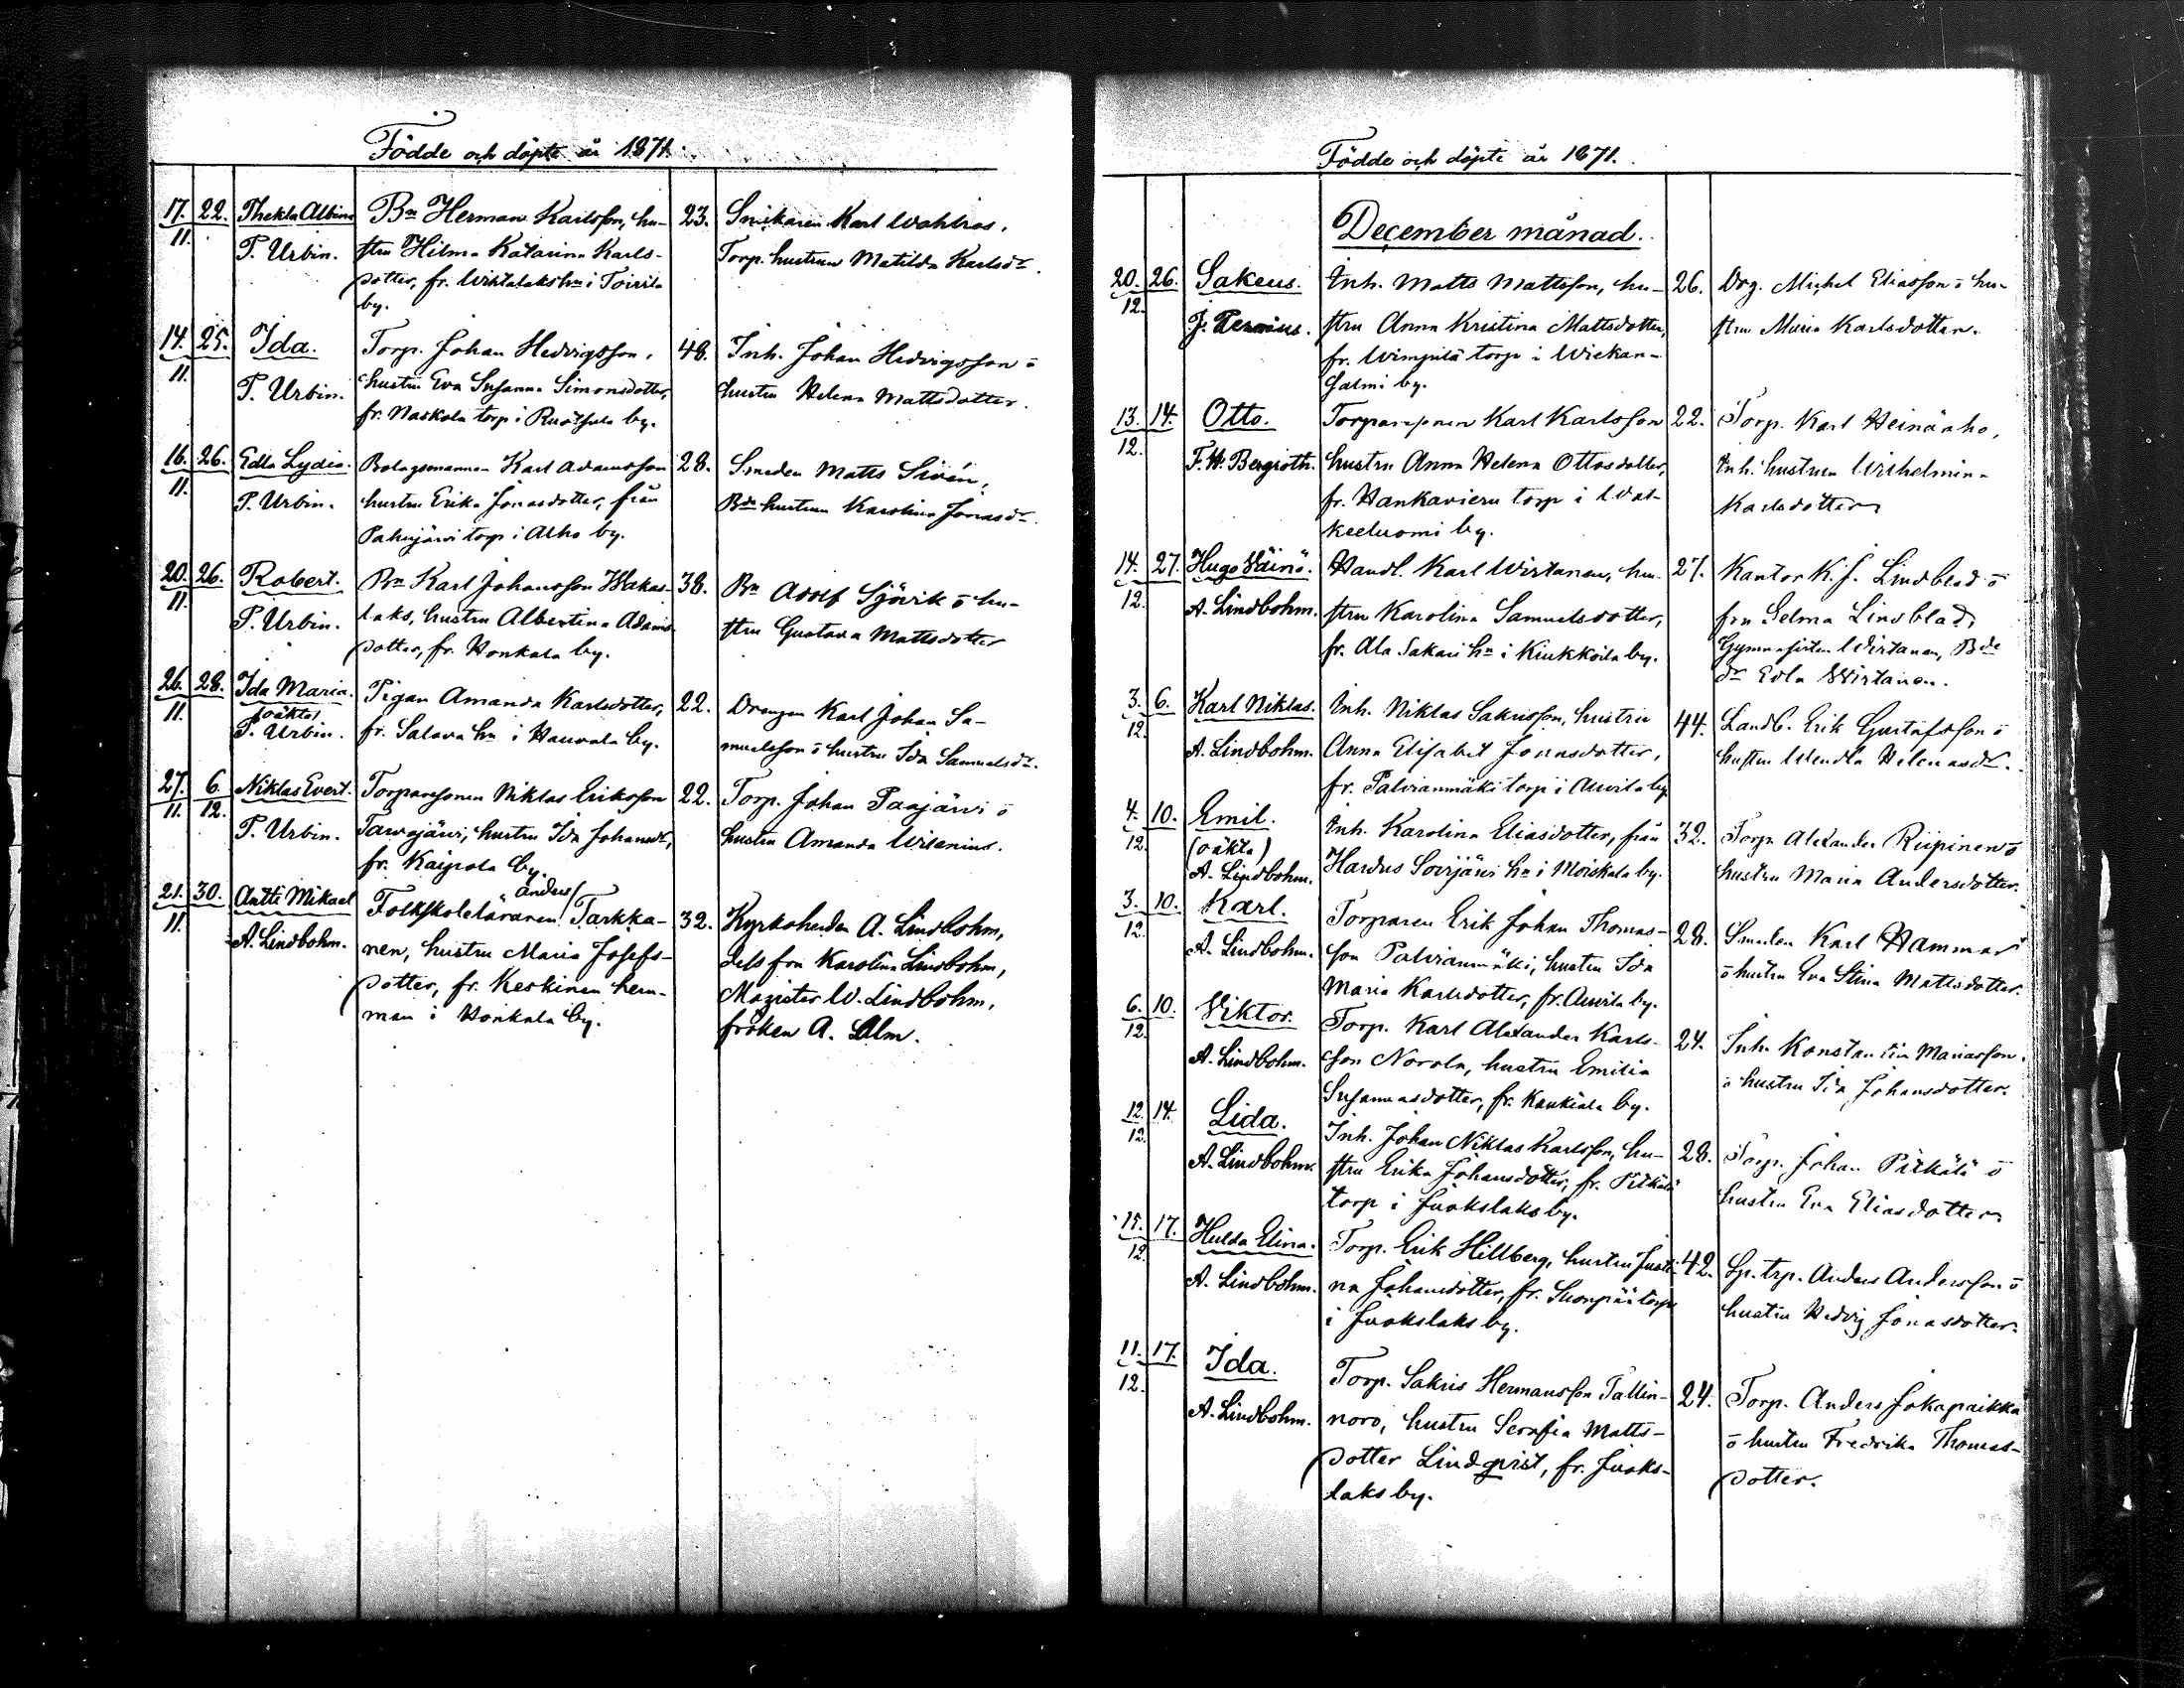 Födde och döpte år 1871.
17. 22. Thekla Albina Bn Herman Karlsson, hu- 23. Snickaren Karl Wahlros,
11. T. Urbin. stru Hilma Katarina Karls- Torp. hustrun Matilda Karlsdr.
dotter, fr. Wirtalaks hn i Toivila
by.
14. 25. Ida. Torp. Johan Hedvigsson, 48. Inh. Johan Hedvigsson o
11. T. Urbin. hustru Eva Susanna Simonsdotter, hustru Helena Mattsdotter.
fr. Naskala torp i Ruotsula by.
16. 26. Edla Lydia. Bolagsmannen Karl Adamsson 28. Smeden Matts Sivén,
11. T. Urbin. hustru Erika Jonasdotter, från Bde hustrun Karolina Jonasdr.
Pahnjärvi torp i Alho by.
20. 26. Robert. Bn Karl Johansson Wakas- 38. Bn Adolf Sjövik o hu-
11. T. Urbin. laks, hustru Albertina Adams- stru Gustava Mattsdotter
dotter, fr. Honkala by.
26. 28. Ida Maria. Pigan Amanda Karlsdotter, 22. Drengen Karl Johan Sa-
11. (oäkta) fr. Salava hn i Hauvala by. muelsson o hustru Ida Samuelsdr.
T. Urbin.
27. 6. Niklas Evert. Torparesonen Niklas Eriksson 22. Torp. Johan Paajärvi o
11. 12. T. Urbin. Tarvajärvi, hustru Ida Johansdr, hustru Amanda Wilenius.
fr. Kaipola by.
21. 30. Antti Mikael Folkskoleläraren Anders Tarkka- 32. Kyrkoherden A. Lindbohm,
11. A. Lindbohm. nen, hustru Maria Josefs- dess fru Karolina Lindbohm,
dotter, fr. Keskinen hem- Magister W. Lindbohm,
man i Honkala by. fröken A. Alm.
Födde och döpte år 1871.
December månad.
20. 26. Sakeus. Inh. Matts Mattsson, hu- 26. Drg. Michel Eliasson o hu-
12. J. stru Anna Kristina Mattsdotter, stru Maria Karlsdotter.
fr. Wimpilä torp i Wiekan-
salmi by.
13. 14. Otto. Torparesonen Karl Karlsson 22. Torp. Karl Heinäaho,
12. F. W. Bergroth. hustru Anna Helena Ottosdotter, Inh. hustrun Wilhelmina
fr. Hankavieru torp i Wat- Karlsdotter
keeluomi by.
14. 27. Hugo Väinö. Handl. Karl Wirtanen, hu- 27. Kantor K. J. Lindblad o
12. A. Lindbohm. stru Karolina Samuelsdotter, fru Selma Lindblad,
fr. Ala Sakari hn i Kiukkoila by. Gymnasisten Wirtanen, Bde
dr Edla Wirtanen.
3. 6. Karl Niklas. Inh. Niklas Sakrisson, hustru 44. Landb. Erik Gustafsson o
12. A. Lindbohm. Anna Elisabet Jonasdotter, hustru Wendla Helenasdr.
fr. Palvianmäki torp i Auvila by
4. 10. Emil. Inh. Karolina Eliasdotter, från 32. Torp. Alexander Riipinen o
12. (oäkta) Hardus Soirjärvi hn i Moiskala by. hustru Maria Andersdotter.
A. Lindbohm.
3. 10. Karl. Torparen Erik Johan Thomas- 28. Smeden Karl Hammar
12. A. Lindbohm. son Palvianmäki, hustru Ida o hustru Eva Stina Mattsdotter.
Maria Karlsdotter, fr. Auvila by.
6. 10. Viktor. Torp. Karl Alexander Karls- 24. Inh. Konstantin Mariasson
12. A. Lindbohm. son Norola, hustru Emilia o hustru Ida Johansdotter.
Susannasdotter, fr. Kaukiala by.
12. 14. Lida. Inh. Johan Niklas Karlsson, hu- 28. Torp. Johan Pitkälä o
12. A. Lindbohm. stru Erika Johansdotter, fr. Pitkälä hustru Eva Eliasdotter
torp i Juokslaks by.
15. 17. Hulda Elina. Torp. Erik Hillberg, hustru Justi- 42. Sp. trp. Anders Andersson o
12. A. Lindbohm. na Johansdotter, fr. Suonpää torp hustru Hedvig Jonasdotter.
i Juokslaks by.
11. 17. Ida. Torp. Sakris Hermansson Tallin- 24. Torp. Anders Jokapaikka
12. A. Lindbohm. noro, hustru Serafia Matts- o hustru Fredrika Thomas-
dotter Lindqvist, fr. Juoks- dotter.
laks by.